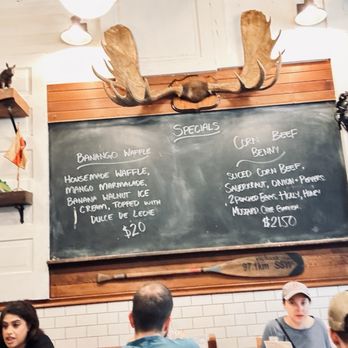 SPECIALS
BANANGO WAFFLE
HOUSEMADE WAFFLE,
MANGO MARMALADE,
BANANA WALNUT ICE
CREAM, TOPPED WITH
DULCE DE LECHE
$20
CORN BEEF
BENNY
SLICED CORN BEEF,
SAUERKRAUT, ONION + PEPPERS
2 POACHED EGGS, HOLLY, HONEY
MUSTARD
$21.50
97.1km SSW